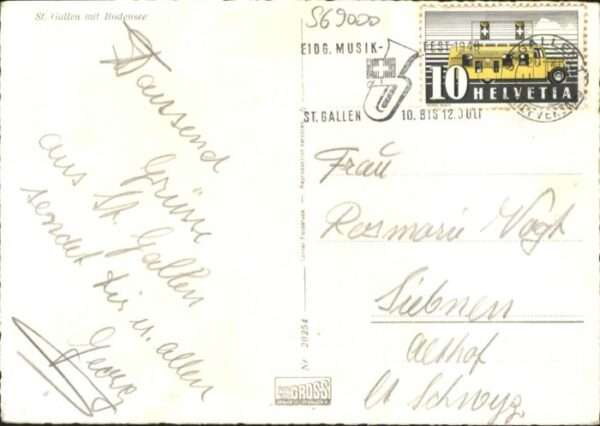 St. Gallen mit Bodensee
569000
EIDG. MUSIK-
FEST 1948
ST. GALLEN 10. BIS 12. JULI
10 HELVETIA
ST. GALLEN
Tausend
Grüsse
aus St. Gallen
sendet dir u. allen
Georg
Frau
Rosmarie Vogt
Siebnen
Althof
Ct Schwyz
Nr. 20254
GROSS